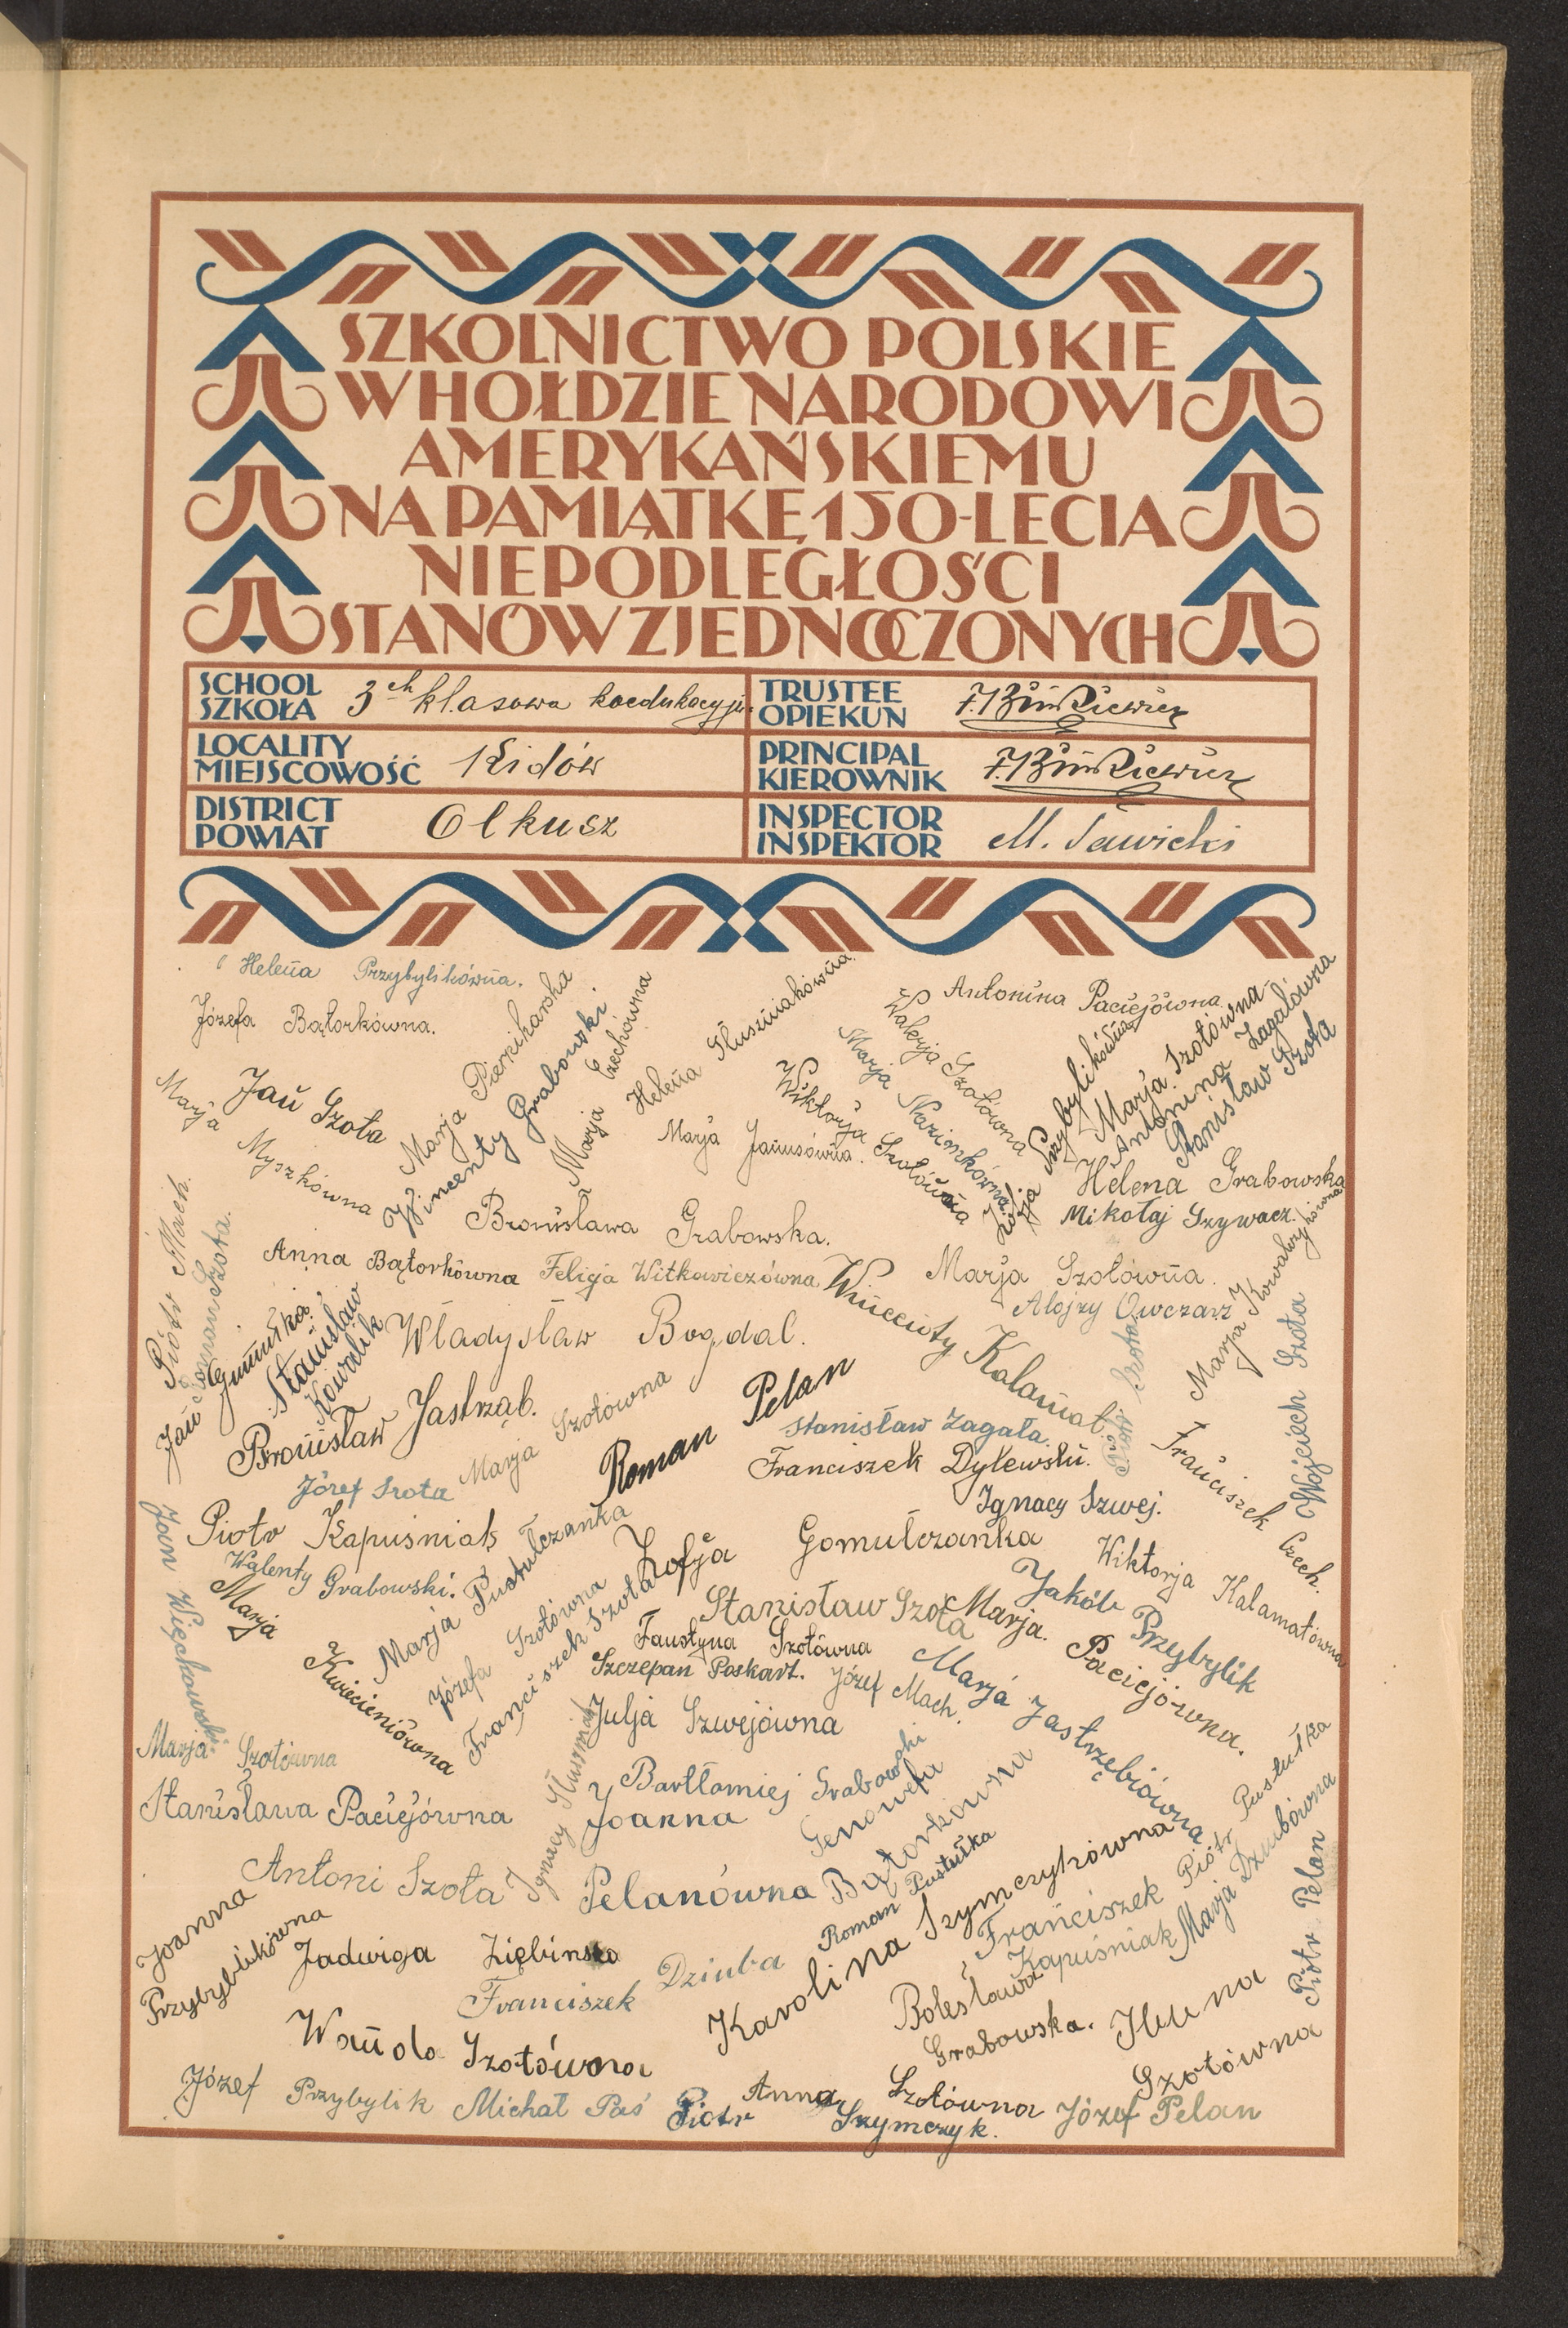 SZKOLNICTWO POLSKIE
W HOŁDZIE NARODOWI
AMERYKAŃSKIEMU
NA PAMIĄTKĘ 150-LECIA
NIEPODLEGŁOŚCI
STANÓW ZJEDNOCZONYCH
SCHOOL
SZKOŁA
3ch klasowa koedukacyjn.
TRUSTEE
OPIEKUN
LOCALITY
MIEJSCOWOŚĆ
Kidów
PRINCIPAL
KIEROWNIK
DISTRICT
POWIAT
Olkusz
INSPECTOR
INSPEKTOR
M. Sawicki
Helena Przybylikówna.
Józefa Bątorkówna.
Antonina Paciejówna
Marja Piensikarska
Wincenty Grabowski.
Marja Czechówna
Helena Słuszniakówna
Walerja Szotówna
Marja Nazimkówna
Wiktorja Szotówna
Zofja Przybylikówna
Marja Szotówna
Antonina Zagałówna
Stanisław Szota
Jan Szota
Marja Myszkówna
Marja Janusówna.
Helena Grabowska
Mikołaj Gzywacz.
Bronisława Grabowska.
Piotr Mach.
Szczepan Szota.
Anna Bątorkówna
Felicja Witkowiczówna
Marja Szotówna.
Alojzy Owczarz
Marja Kowalczykówna
Wincenty Kalamat.
Władysław Bogdal.
Jan Gumułka
Stanisław
Kowalik
Wojciech Szota
Piotr Szota
Bronisław Jastrząb.
Marja Szotówna
Roman Pelan
Stanisław Zagała.
Franciszek Dylewski.
Franciszek Czech.
Józef Szota
Ignacy Szwej.
Piotr Kapuśniak
Walenty Grabowski.
Jan Więchowski
Marja Kwiecieniówna
Marja Pustułczanka
Józefa Szotówna
Franciszek Szota
Zofja Gomułczanka
Wiktorja Kalamatówna
Jakób Przybylik
Stanisław Szota
Marja. Paciejówna.
Faustyna Szotówna
Szczepan Poskart.
Józef Mach.
Marja Jastrzębiówna
Julja Szwejówna
Marja Szotówna
Ignacy Słuszniak
Bartłomiej Grabowski
Stanisława Paciejówna
Joanna
Pelanówna
Genowefa
Bątorkówna
Piotr Pustułka
Marja Dziubówna
Antoni Szota
Roman Pustułka
Karolina Szymczykówna
Franciszek
Kapuśniak
Piotr Pelan
Joanna
Przybylikówna
Jadwiga Ziębinska
Franciszek Dziuba
Bolesława
Grabowska.
Wanda Szotówna
Szotówna
Józef Przybylik
Michał Paś
Anna Szotówna
Piotr Szymczyk.
Józef Pelan